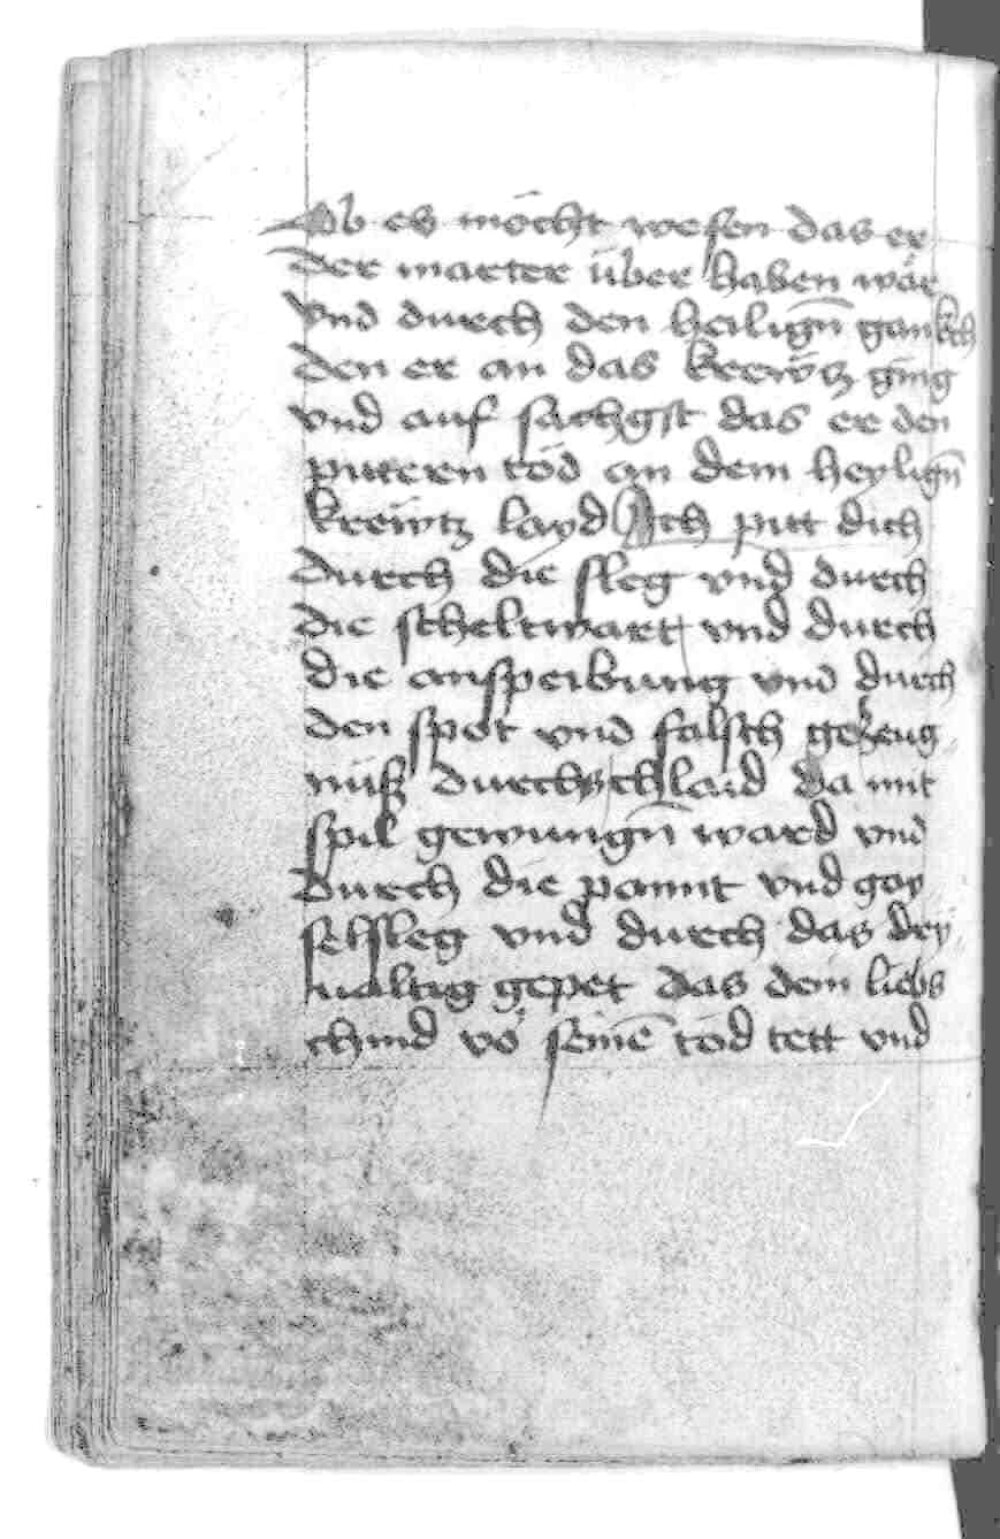 Ob es möcht wesen das er
der marter über haben wär
vnd durch den heilign̄ gankch
den er an das krewtz ging
vnd auf sachgst das er den
pittern tod an dem heylign̄
krewtz layd Ich pitt dich
durch die sleg vnd durch
die scheltwart vnd durch
die anspeibung vnd durch
den spot vnd falsch gezeug
nüß durch laid da mit
spil gewungn̄ ward vnd
durch die pannt vnd gay
selsleg vnd durch das drỳ
ualtig gepet das dem liebs
chind vō seinē tod tett vnd